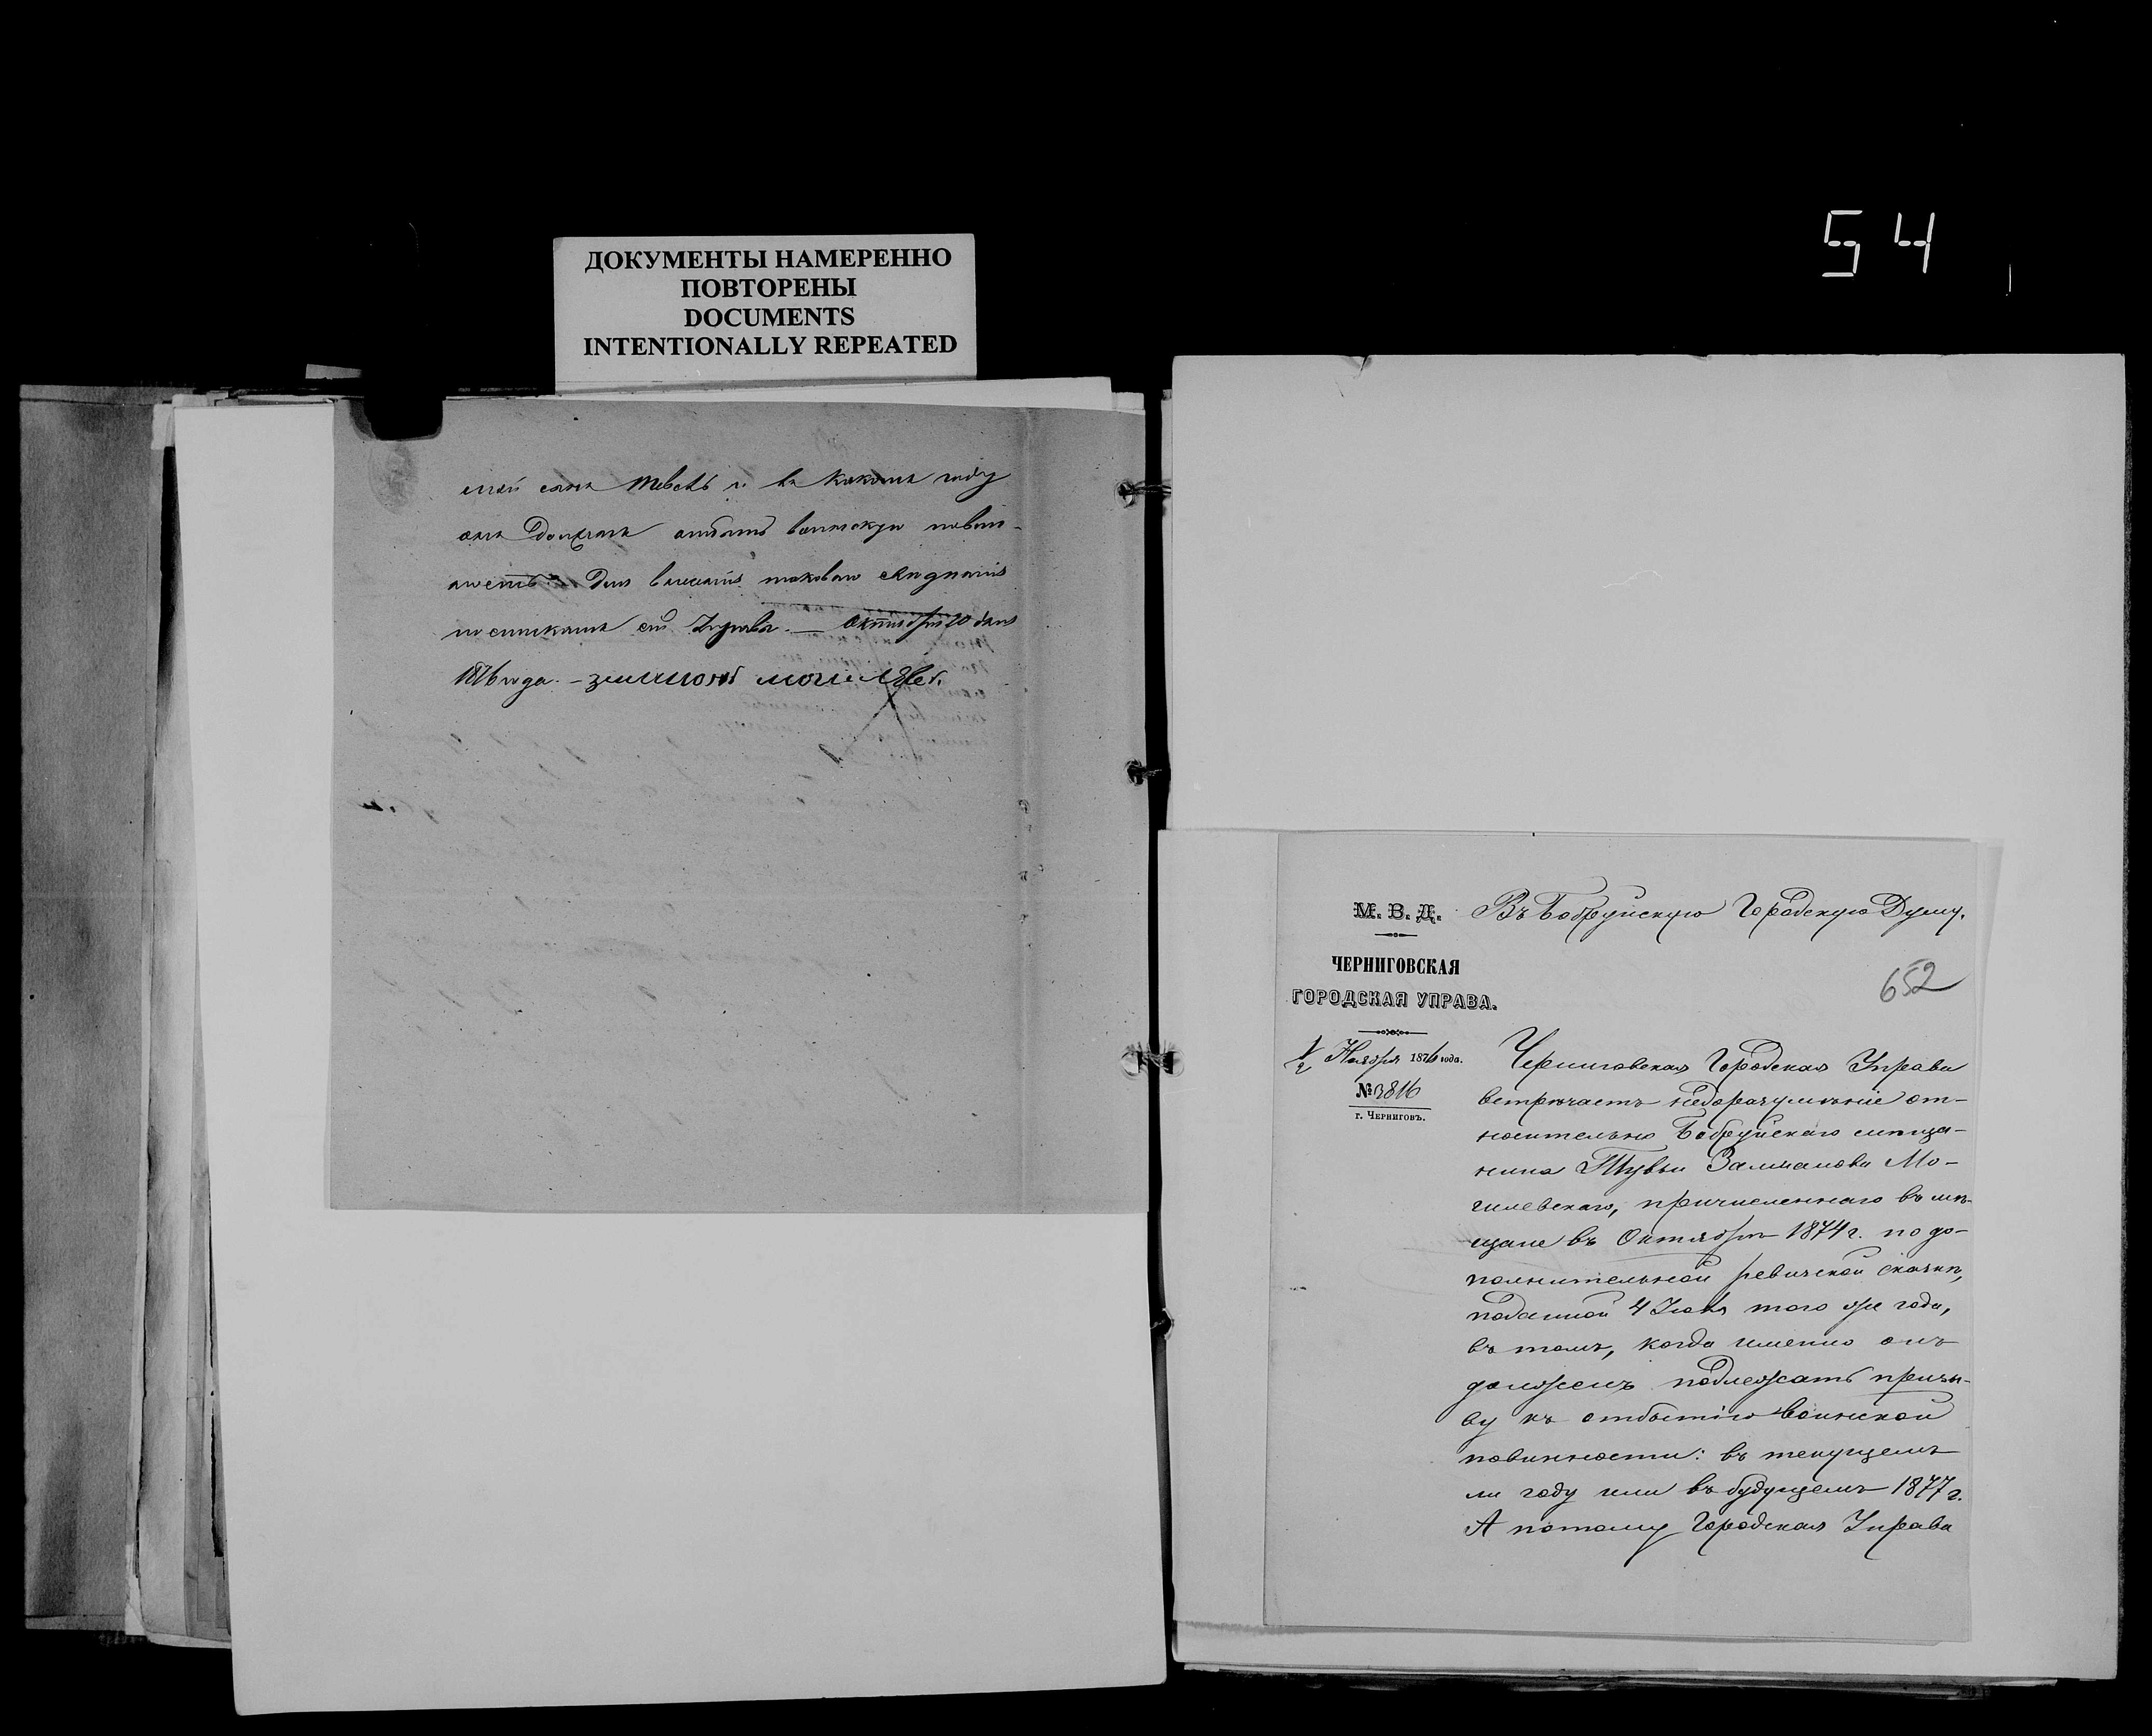 54
ДОКУМЕНТЫ НАМЕРЕННО
ПОВТОРЕНЫ
DOCUMENTS
INTENTIONALLY REPEATED
мой сынъ Тевель и въ какомъ году
онъ долженъ отбыть воинскую повин-
ность? Для
сей Управы. — Октября 20 дня
1876 года. —
М. В. Д.
ЧЕРНИГОВСКАЯ
ГОРОДСКАЯ УПРАВА.
Ноября 1876 года.
№ 3816
г. Черниговъ.
Въ Бобруйскую Городскую Думу.
652
Черниговская Городская Управа
встрѣчаетъ недоразумѣніе от-
носительно Бобруйскаго мѣща-
нина Тувьи Залманова Мо-
гилевскаго, причисленнаго въ мѣ-
щане въ Октябрѣ 1874 г. по до-
полнительной ревизской сказкѣ,
поданной 4 Іюня того же года,
въ томъ, когда именно онъ
долженъ подлежать призы-
ву къ отбытію воинской
повинности: въ текущемъ
ли году или въ будущемъ 1877 г.
А потому Городская Управа